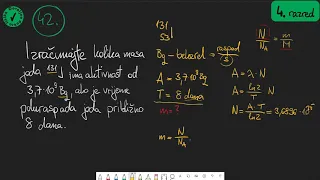 42.
4. razred
Izračunajte kolika masa
joda 131 I ima aktivnost od
3,7·10⁹ Bq, ako je vrijeme
poluraspada joda približno
8 dana.
131
53
Bq - bekerel → raspad/s
A = 3,7·10⁹ Bq
T = 8 dana
m = ?
m = N/N_A ·
N/N_A = m/M
A = λ · N
A = ln2/T · N
N = A·T/ln2 =